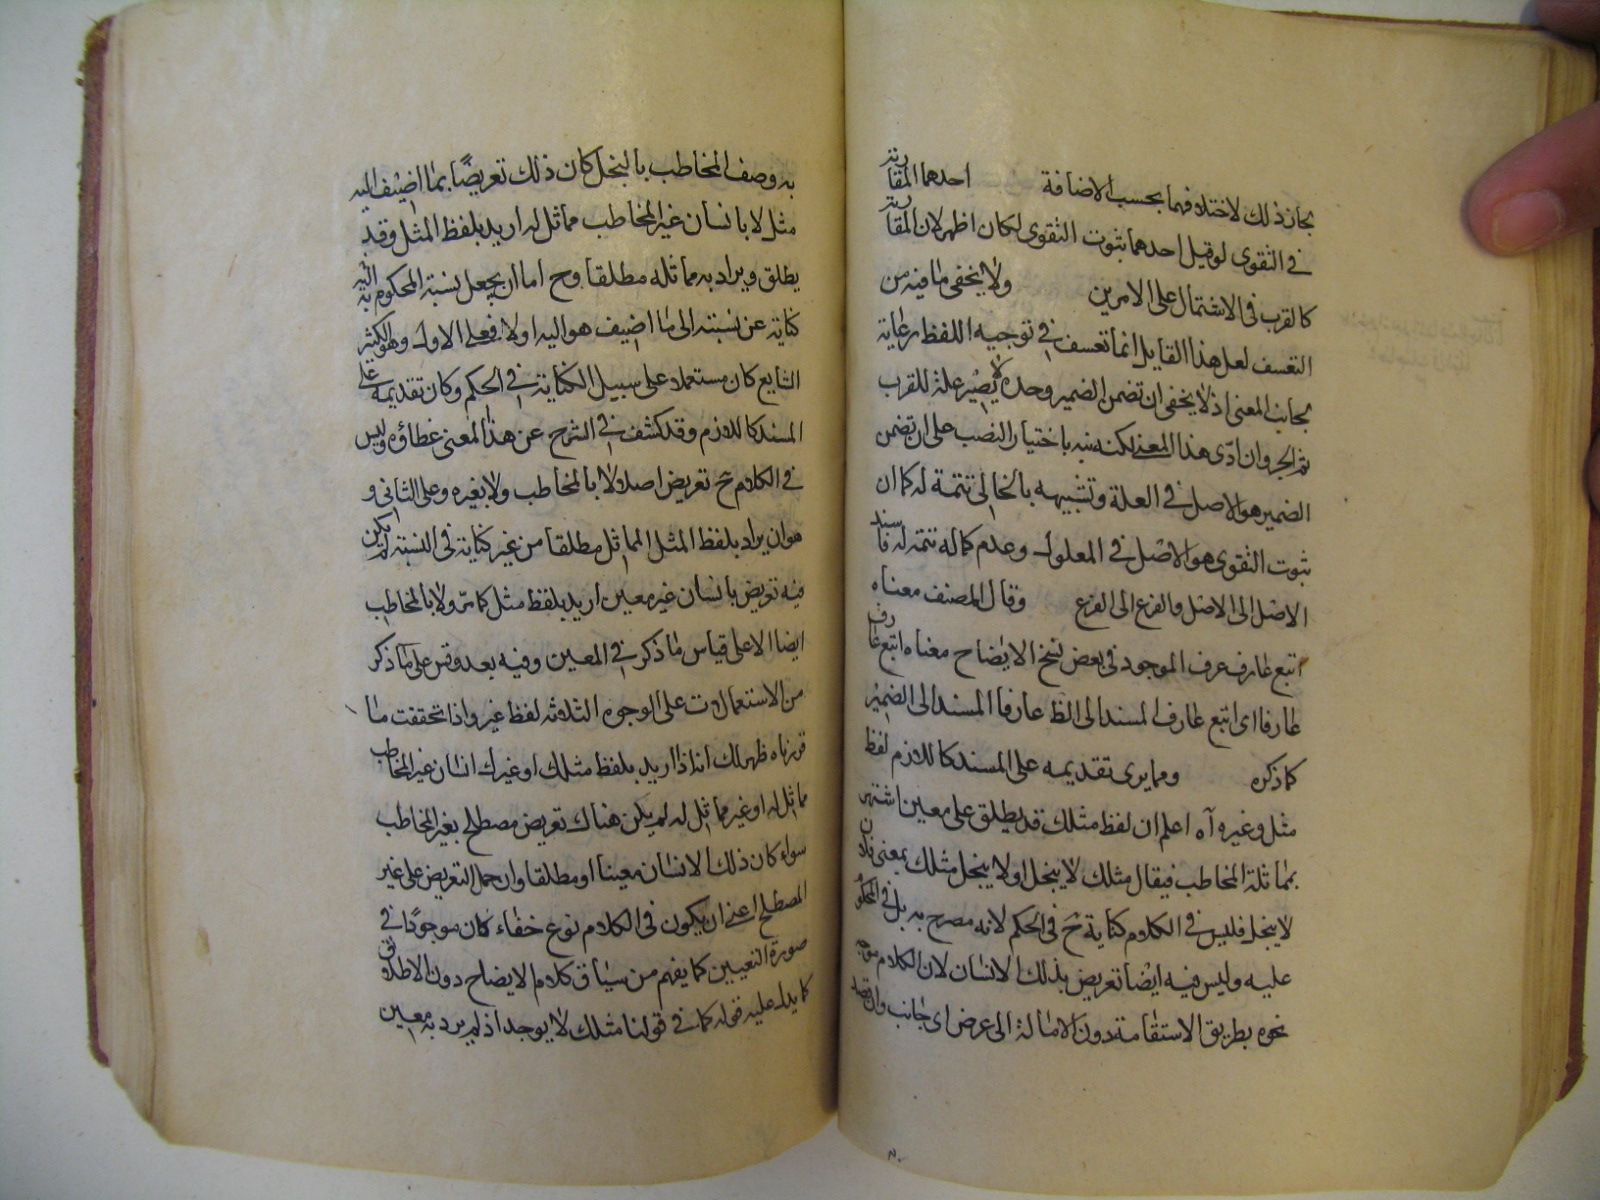 بجاز ذلك لاختلافهما بحسب الاضافة احدهما المقارنة
في التقوى لو قيل احدهما ثبوت التقوى لكان اظهر لان المقارنة
كالقرب في الاشتمال على الامرين ولا يخفى ما فيه من
التعسف لعل هذا القايل انما تعسف في توجيه اللفظ رعاية
لجانب المعنى اذ لا يخفى ان تضمن الضمير وحده لا يصير علة للقرب
ثم الجر وان ادى هذا المعنى لكنه نبه باختيار النصب على ان تضمن
الضمير هو الاصل في العلة وتشبيهه بالخالى تتمة له كما ان
ثبوت التقوى هو الاصل في المعلول وعدم كماله تتمة له فاسند
الاصل الى الاصل والفرع الى الفرع وقال المصنف معناه
اتبع عارف عرف الموجود في بعض نسخ الايضاح معناه اتبع عارف
عارفا اى اتبع عارف المسند الى الظ عارفا المسند الى الضمير
كما ذكره ومما يرى تقديمه على المسند كاللازم لفظ
مثل وغيره آه اعلم ان لفظ مثلك قد يطلق على معين اشتهر
بمماثلة المخاطب فيقال مثلك لا يبخل او لا يبخل مثلك بمعنى فلان
لا يبخل فليس في الكلام كناية ح في الحكم لانه مصرح به بل في المحكوم
عليه وليس فيه ايضا تعريض بذلك الانسان لان الكلام موجه
نحوه بطريق الاستقامة دون الامالة الى عرض اى جانب وان قصد
به وصف المخاطب بالبخل كان ذلك تعريضًا بما اضيف اليه
مثل لا بانسان غير المخاطب مماثل له اريد بلفظ المثل وقد
يطلق ويراد به مماثله مطلقا وح اما ان يجعل نسبة المحكوم به اليه
كناية عن نسبته الى ما اضيف هو اليه اولا فعلى الاول وهو الكثير
الشايع كان مستعملا على سبيل الكناية في الحكم وكان تقديمه على
المسند كاللازم وقد كشف في الشرح عن هذا المعنى غطاؤه وليس
في الكلام ح تعريض اصلا لا بالمخاطب ولا بغيره وعلى الثانى و
هو ان يراد بلفظ المثل المماثل مطلقا من غير كناية في النسبة لم يكن
فيه تعريض بانسان غير معين اريد بلفظ مثل كما مر ولا بالمخاطب
ايضا الا على قياس ما ذكر في المعين وفيه بعد وقس على ما ذكر
من الاستعمالات على الوجوه الثلاثة لفظ غير واذا تحققت ما
قررناه ظهر لك انه اذا اريد بلفظ مثلك او غيرك انسان غير المخاطب
مماثل له او غير مماثل له لم يكن هناك تعريض مصطلح بغير المخاطب
سواء كان ذلك الانسان معينا او مطلقا وان حمل التعريض على غير
المصطلح اعنى ان يكون في الكلام نوع خفاء كان موجودًا في
صورة التعيين كما يفهم من سياق كلام الايضاح دون الاطلاق
كما يدل عليه قوله كما في قولنا مثلك لا يوجد اذ لم يرد به معين